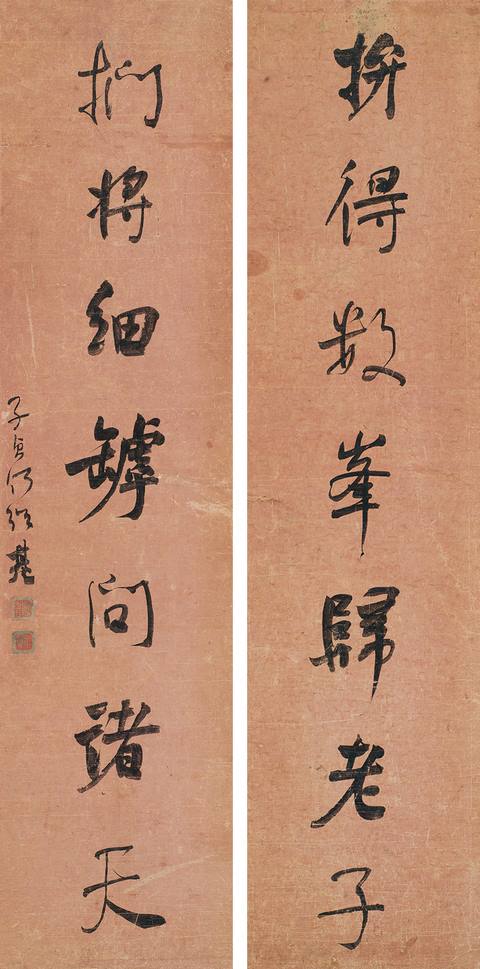 拚得數峯歸老子
捫將細罅問諸天
子貞何紹基